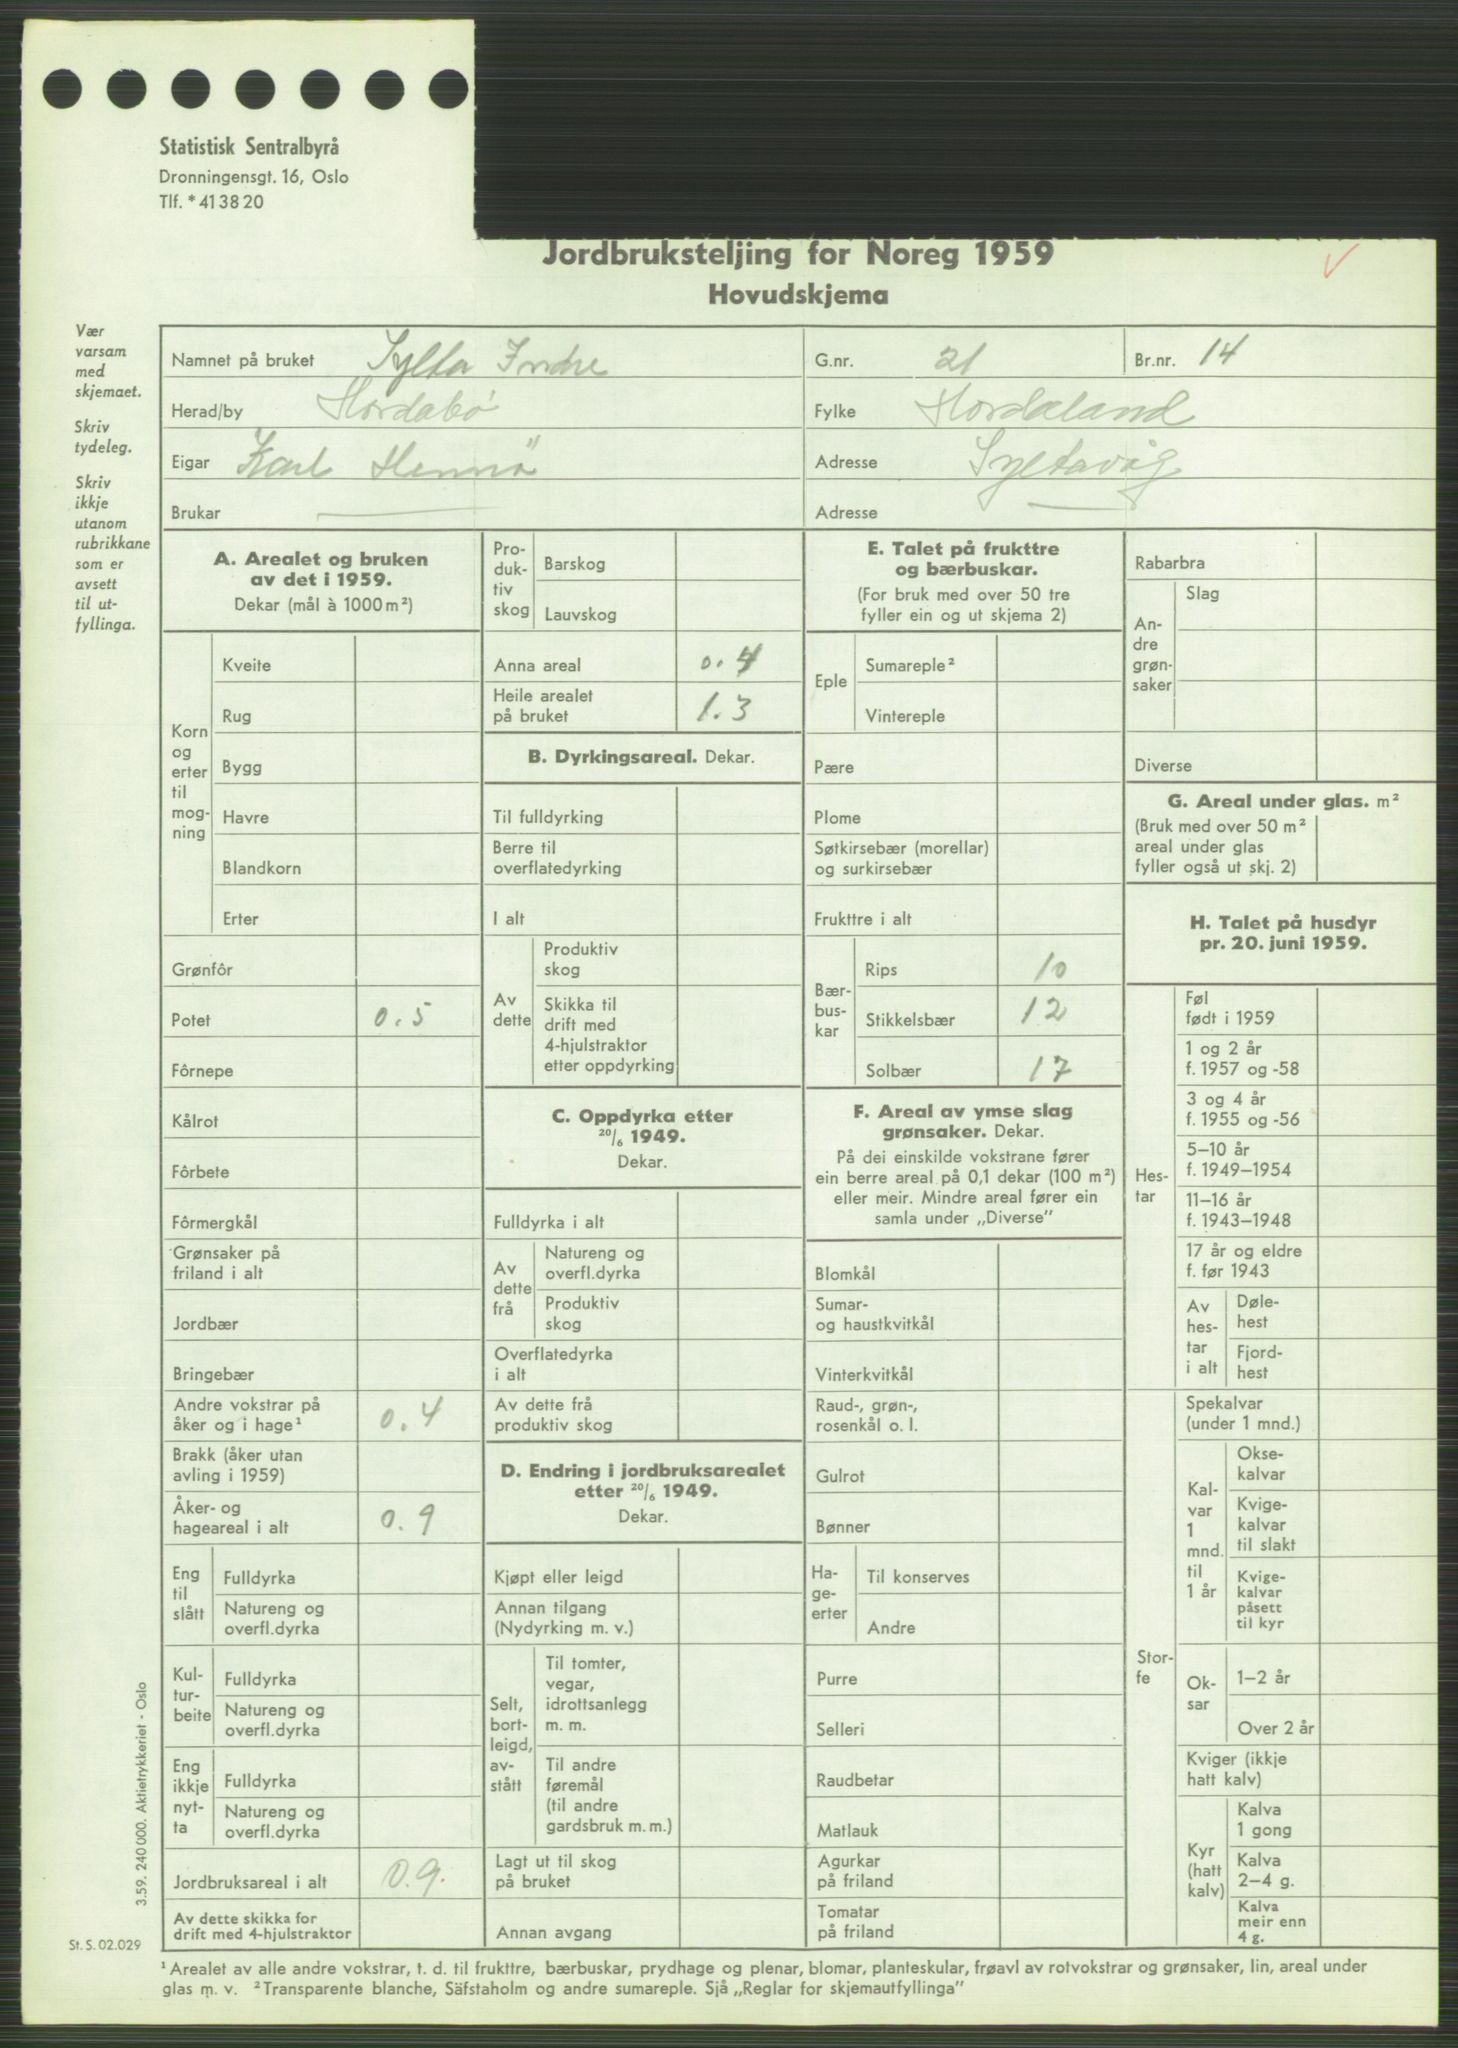 Statistisk Sentralbyrå
Dronningensgt. 16, Oslo
Tlf. *41 38 20
Jordbruksteljing for Noreg 1959
Hovudskjema
Vær
varsam
med
skjemaet.
Skriv
tydeleg.
Skriv
ikkje
utanom
rubrikkane
som er
avsett
til ut-
fyllinga.
Namnet på bruket Sylta Indre G.nr. 21 Br.nr. 14
Herad/by Hordabø Fylke Hordaland
Eigar Karl Hennø Adresse Syltavåg
Brukar — Adresse —
A. Arealet og bruken
av det i 1959.
Dekar (mål à 1000 m²)
Korn
og
erter
til
mog-
ning
Kveite
Rug
Bygg
Havre
Blandkorn
Erter
Grønfôr
Potet 0.5
Fôrnepe
Kålrot
Fôrbete
Fôrmergkål
Grønsaker på
friland i alt
Jordbær
Bringebær
Andre vokstrar på
åker og i hage¹ 0.4
Brakk (åker utan
avling i 1959)
Åker- og
hageareal i alt 0.9
Eng
til
slått
Fulldyrka
Natureng og
overfl.dyrka
Kul-
tur-
beite
Fulldyrka
Natureng og
overfl.dyrka
Eng
ikkje
nyt-
ta
Fulldyrka
Natureng og
overfl.dyrka
Jordbruksareal i alt 0.9.
Av dette skikka for
drift med 4-hjulstraktor
Pro-
duk-
tiv
skog
Barskog
Lauvskog
Anna areal 0.4
Heile arealet
på bruket 1.3
B. Dyrkingsareal. Dekar.
Til fulldyrking
Berre til
overflatedyrking
I alt
Av
dette
Produktiv
skog
Skikka til
drift med
4-hjulstraktor
etter oppdyrking
C. Oppdyrka etter
20/6 1949.
Dekar.
Fulldyrka i alt
Av
dette
frå
Natureng og
overfl.dyrka
Produktiv
skog
Overflatedyrka
i alt
Av dette frå
produktiv skog
D. Endring i jordbruksarealet
etter 20/6 1949.
Dekar.
Kjøpt eller leigd
Annan tilgang
(Nydyrking m. v.)
Selt,
bort-
leigd,
av-
stått
Til tomter,
vegar,
idrottsanlegg
m. m.
Til andre
føremål
(til andre
gardsbruk m. m.)
Lagt ut til skog
på bruket
Annan avgang
E. Talet på frukttre
og bærbuskar.
(For bruk med over 50 tre
fyller ein og ut skjema 2)
Eple
Sumareple²
Vintereple
Pære
Plome
Søtkirsebær (morellar)
og surkirsebær
Frukttre i alt
Bær-
bus-
kar
Rips 10
Stikkelsbær 12
Solbær 17
F. Areal av ymse slag
grønsaker. Dekar.
På dei einskilde vokstrane fører
ein berre areal på 0,1 dekar (100 m²)
eller meir. Mindre areal fører ein
samla under „Diverse”
Blomkål
Sumar-
og haustkvitkål
Vinterkvitkål
Raud-, grøn-,
rosenkål o. l.
Gulrot
Bønner
Ha-
ge-
erter
Til konserves
Andre
Purre
Selleri
Raudbetar
Matlauk
Agurkar
på friland
Tomatar
på friland
Rabarbra
An-
dre
grøn-
saker
Slag
Diverse
G. Areal under glas. m²
(Bruk med over 50 m²
areal under glas
fyller også ut skj. 2)
H. Talet på husdyr
pr. 20. juni 1959.
Hes-
tar
Føl
født i 1959
1 og 2 år
f. 1957 og -58
3 og 4 år
f. 1955 og -56
5–10 år
f. 1949–1954
11–16 år
f. 1943–1948
17 år og eldre
f. før 1943
Av
hes-
tar
i alt
Døle-
hest
Fjord-
hest
Stor-
fe
Spekalvar
(under 1 mnd.)
Kal-
var
1
mnd.
til
1 år
Okse-
kalvar
Kvige-
kalvar
til slakt
Kvige-
kalvar
påsett
til kyr
Ok-
sar
1–2 år
Over 2 år
Kviger (ikkje
hatt kalv)
Kyr
(hatt
kalv)
Kalva
1 gong
Kalva
2–4 g.
Kalva
meir enn
4 g.
3.59. 240 000. Aktietrykkeriet - Oslo
St. S. 02.029
¹ Arealet av alle andre vokstrar, t. d. til frukttre, bærbuskar, prydhage og plenar, blomar, planteskular, frøavl av rotvokstrar og grønsaker, lin, areal under
glas m. v. ² Transparente blanche, Säfstaholm og andre sumareple. Sjå „Reglar for skjemautfyllinga”